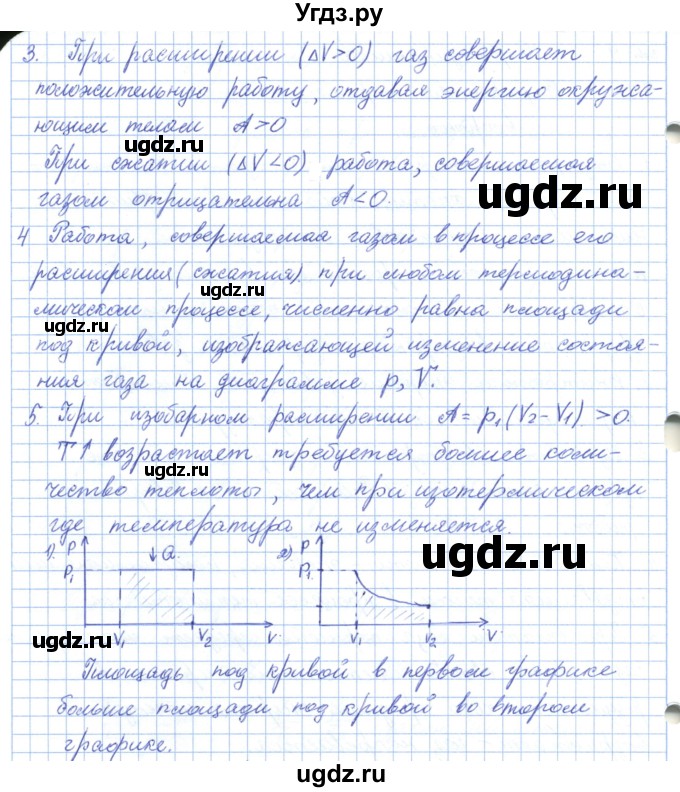 Угдз.ру
3. При расширении (ΔV>0) газ совершает
положительную работу, отдавая энергию окружа-
ющим телам A>0
ugdz.ru
При сжатии (ΔV<0) работа, совершаемая
ugdz.ru
газом отрицательна A<0.
4 Работа, совершаемая газом в процессе его
расширения (сжатия) при любом термодина-
ugdz.ru
мическом процессе, численно равна площади
ugdz.ru
под кривой, изображающей изменение состоя-
ния газа на диаграмме p, V.
5. При изобарном расширении A = p₁(V₂-V₁) >0.
T↑ возрастает требуется большее коли-
ugdz.ru
чество теплоты, чем при изотермическом
где температура не изменяется.
1). P ↓Q. 2) P
P₁ P₁
ugdz.ru
ugdz.ru
V₁ V₂ V V₁ V₂ V
Площадь под кривой в первом графике
больше площади под кривой во втором
графике.
ugdz.ru
ugdz.ru